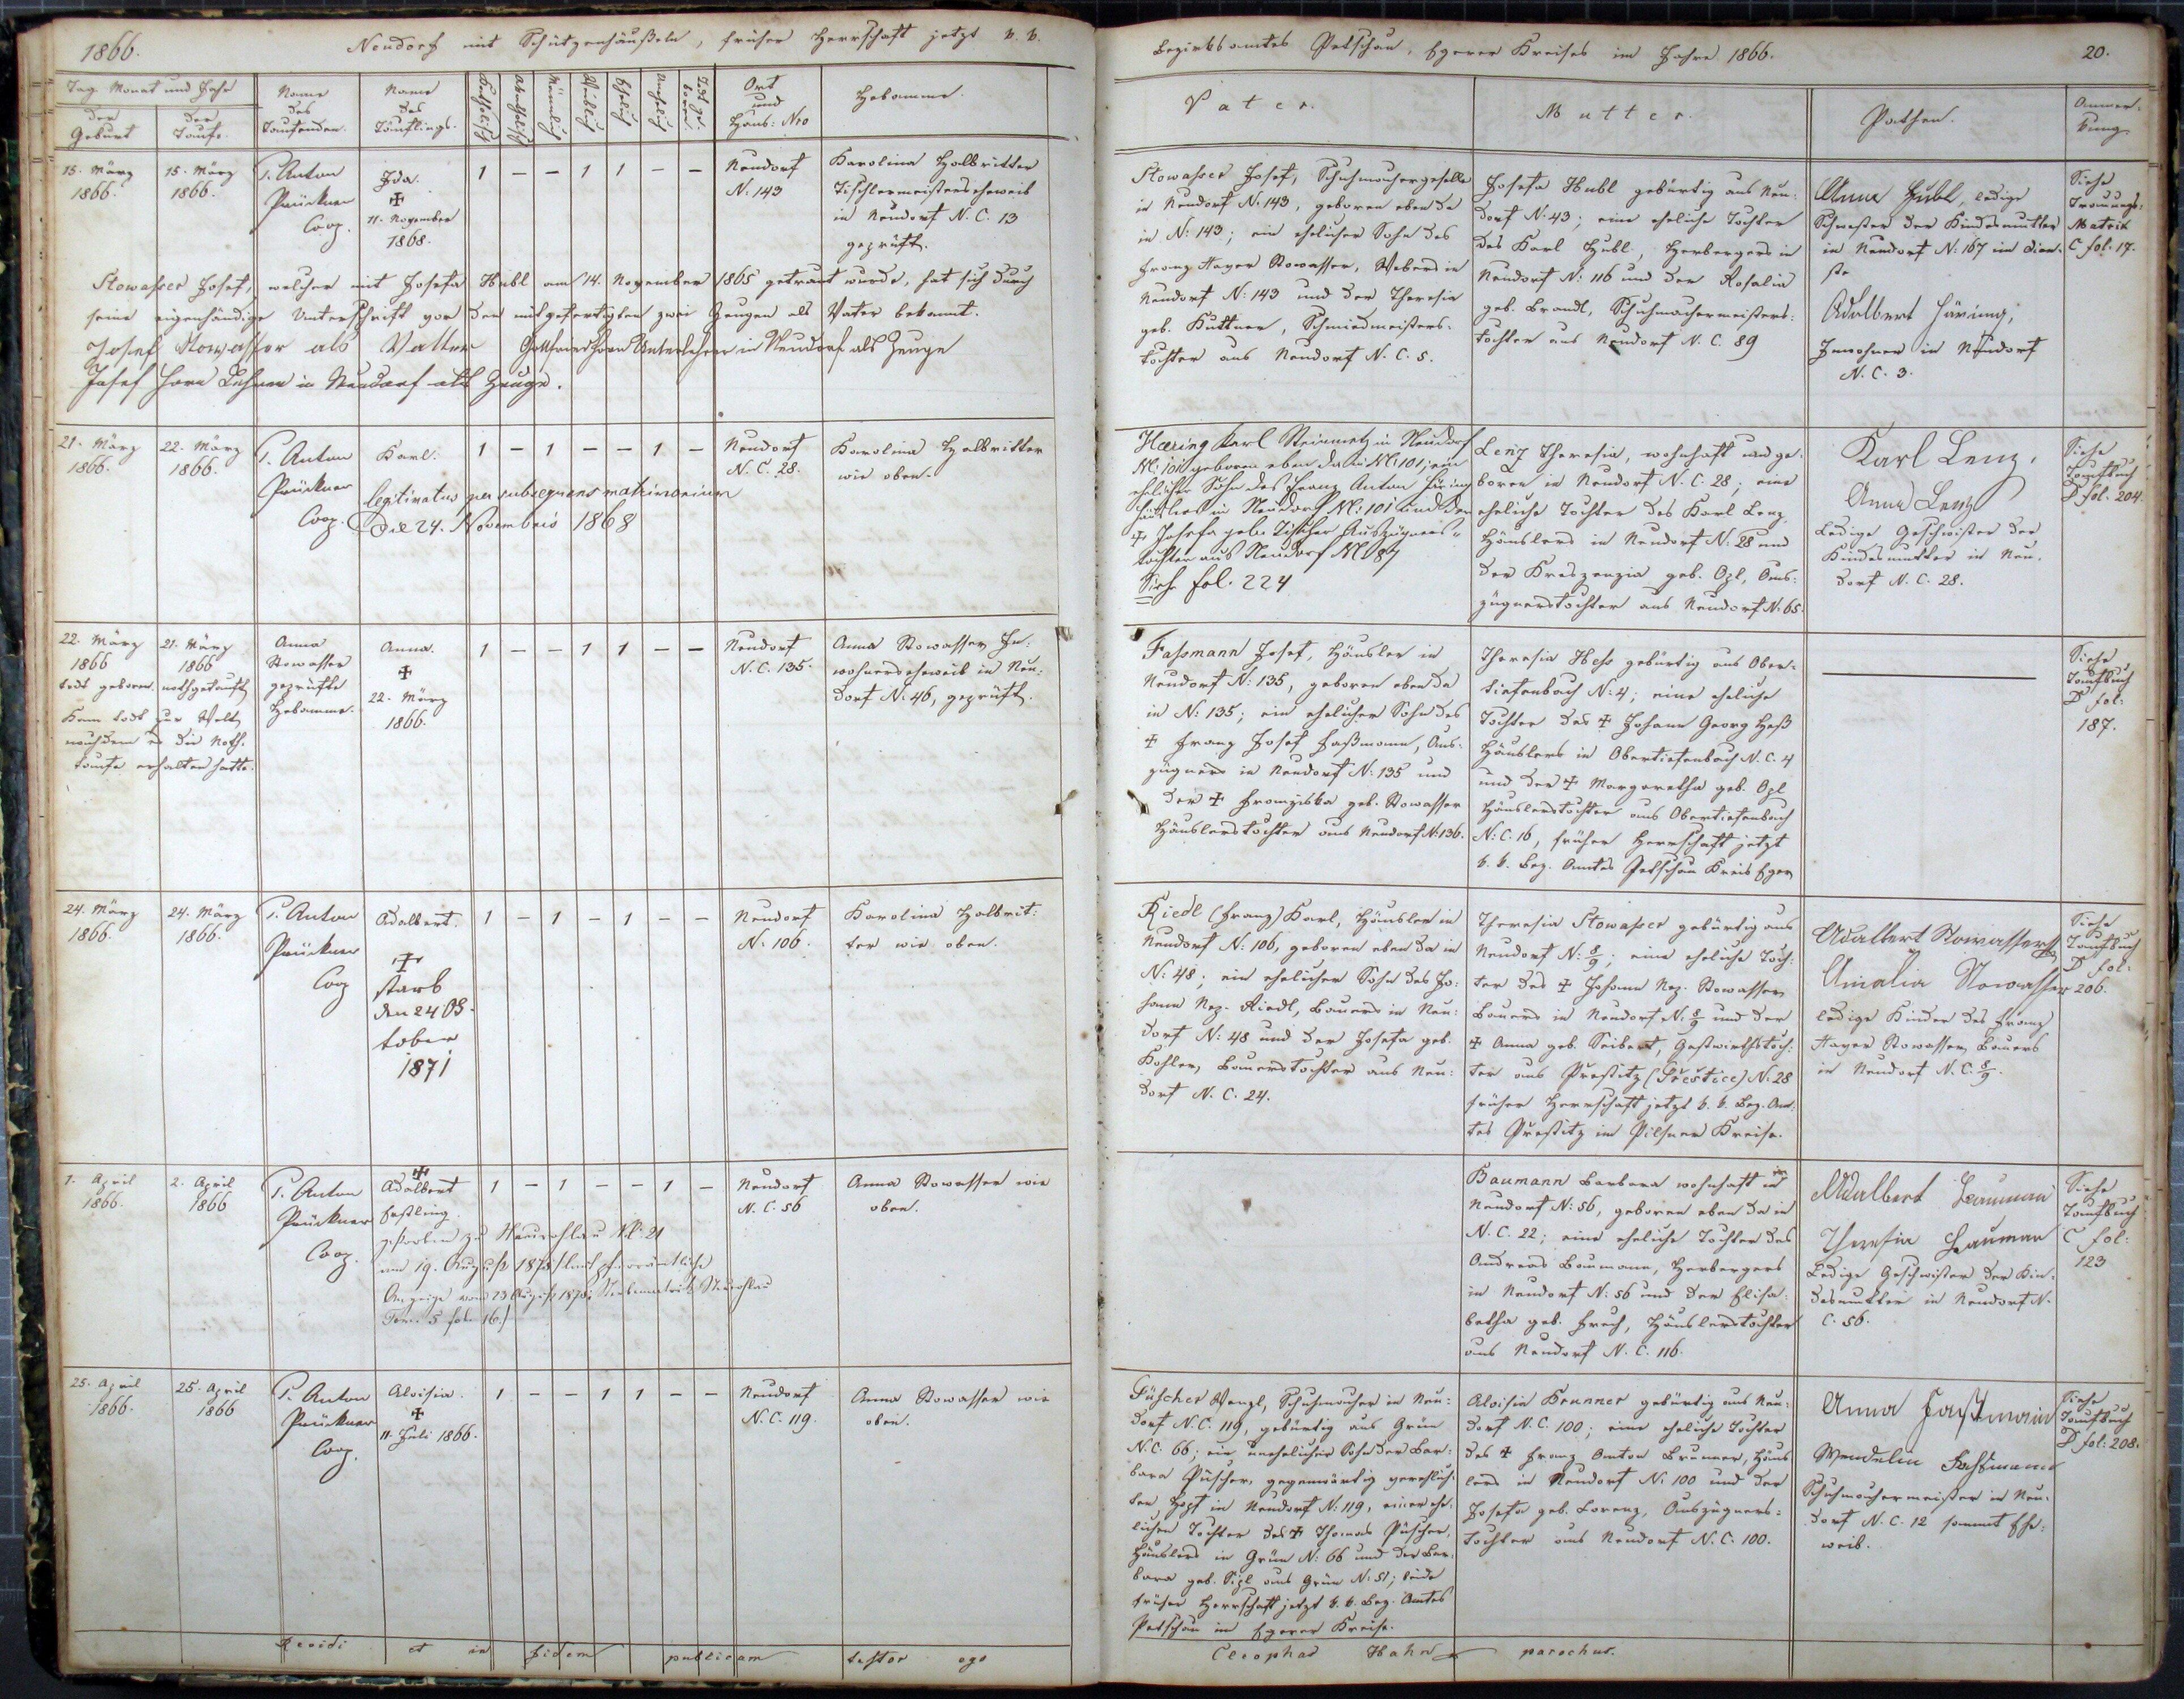 1866.
Neudorf mit Schützenhäußeln, früher Herrschaft jetzt k. k.
Tag Monat und Jahr
der Geburt
der Taufe
Name des Taufenden.
Name des Täuflings.
Katholisch
Akatholisch
Männlich
Weiblich
Ehelich
Unehelich
Todt geboren
Ort und Haus: Nro
Hebamme.
15. März
1866.
15. März
1866.
P. Anton
Prückner
Coop.
Ida.
✠
11. November
1868.
1 – – 1 1 – –
Neudorf
N. 143
Karolina Halbritter
Tischlermeisters Eheweib
in Neudorf N. C. 13
geprüft.
Stowasser Josef, welcher mit Josefa Hubl am 14. November 1865 getraut wurde, hat sich durch
seine eigenhändige Unterschrift vor den mitgefertigten zwei Zeugen als Vater bekannt.
Josef Stowasser als Vatter
Unterlehrer in Neudorf als Zeuge
Josef Horn Lehrer in Neudorf als Zeuge.
21. März
1866.
22. März
1866.
P. Anton
Prückner
Coop.
Karl.
legitimatus per subsequens matrimonium
die 24. Novembris 1868
1 – 1 – – 1 –
Neudorf
N. C. 28.
Karolina Halbritter
wie oben.
22. März
1866
todt geboren.
21. März
1866
nothgetauft
Kam todt zur Welt,
nachdem es die Noth-
taufe erhalten hatte.
Anna
Stowasser
geprüfte
Hebamme.
Anna.
✠
22. März
1866.
1 – – 1 1 – –
Neudorf
N. C. 135.
Anna Stowasser In-
wohners Eheweib in Neu-
dorf N. 46, geprüft.
24. März
1866.
24. März
1866.
P. Anton
Prückner
Coop
Adalbert.
✠
starb
den 24 Ok-
tober
1871
1 – 1 – 1 – –
Neudorf
N. 106.
Karolina Halbrit-
ter wie oben.
1. April
1866.
2. April
1866
P. Anton
Prückner
Coop.
✠
Adalbert
Erstling.
gestorben zu Neurohlau N. 21
am 19. August 1878 laut pfarrämtliche
Anzeige vom 23 August 1878; Sterbematrik Neurohlau
Tom. 5 fol. 16.
1 – 1 – – 1 –
Neudorf
N. C. 56
Anna Stowasser wie
oben.
25. April
1866.
25. April
1866
P. Anton
Prückner
Coop.
Aloisia.
✠
11. Juli 1866.
1 – – 1 1 – –
Neudorf
N. C. 119.
Anna Stowasser wie
oben.
Revidi et in fidem publicam testor ego
Bezirksamtes Petschau, Egerer Kreises im Jahre 1866.
20.
Vater.
Mutter.
Pathen.
Anmer-
kung
Stowasser Josef, Schuhmachergeselle
in Neudorf N. 143, geboren eben da
in N: 143; ein ehelicher Sohn des
Franz Xaver Stowasser, Webers in
Neudorf N: 143 und der Theresia
geb. Kuttner, Schmiedmeisters-
tochter aus Neudorf N. C. 5.
Josefa Hubl gebürtig aus Neu-
dorf N. 43; eine eheliche Tochter
des Karl Hubl, Herbergers in
Neudorf N: 116 und der Rosalia
geb. Brandl, Schuhmachermeisters-
tochter aus Neudorf N. C. 89
Anna Hubl, ledige
Schwester der Kindesmutter
in Neudorf N. 167 im Dien-
ste
Adalbert Häring,
Inwohner in Neudorf
N. C. 3.
Siehe
Trauungs-
Matrik
C fol. 17.
Haring Karl Steinmetz in Neudorf
N: 101 geboren eben da in N: 101; ein
ehelicher Sohn des Franz Anton Häring
Häuslers in Neudorf N: 101 und der
✠ Josefa geb. Tischer Auszügners-
tochter aus Neudorf N 87
Sieh fol. 224
Lenz Theresia, wohnhaft und ge-
boren in Neudorf N. C. 28; eine
eheliche Tochter des Karl Lenz,
Häuslers in Neudorf N. 28 und
der Kreszenzia geb. Ozl, Aus-
zügnerstochter aus Neudorf N. 65.
Karl Lenz.
Anna Lenz
Ledige Geschwister der
Kindesmutter in Neu-
dorf N. C. 28.
Siehe
Taufbuch
D fol. 204.
Fassmann Josef, Häusler in
Neudorf N: 135, geboren eben da
in N: 135; ein ehelicher Sohn des
✠ Franz Josef Faßmann, Aus-
zügners in Neudorf N. 135 und
der ✠ Franziska geb. Stowasser
Häuslerstochter aus Neudorf N. 136.
Theresia Hess gebürtig aus Ober-
tiefenbach N: 4; eine eheliche
Tochter des ✠ Johann Georg Heß
Häuslers in Obertiefenbach N. C. 4
und der ✠ Margaretha geb. Ozl
Häuslerstochter aus Obertiefenbach
N: C. 16, früher Herrschaft jetzt
k. k. Bez. Amtes Petschau Kreis Eger
Siehe
Taufbuch
D fol:
187.
Riedl (Franz) Karl, Häusler in
Neudorf N: 106, geboren eben da in
N: 48; ein ehelicher Sohn des Jo-
hann Nep. Riedl, Bauers in Neu-
dorf N: 48 und der Josefa geb.
Kohler, Bauerstochter aus Neu-
dorf N. C. 24.
Theresia Stowasser gebürtig aus
Neudorf N: 8/9; eine eheliche Toch-
ter des ✠ Johann Nep. Stowasser
Bauers in Neudorf N. 8/9 und der
✠ Anna geb. Seibert, Gastwirthstoch-
ter aus Prestitz (Přestice) N: 28
früher Herrschaft jetzt k. k. Bez. Am-
tes Prestitz im Pilsner Kreise.
Adalbert Stowasser
Amalia Stowasser
ledige Kinder des Franz
Xaver Stowasser, Bauers
in Neudorf N. C. 8/9.
Siehe
Taufbuch
D fol:
206.
Baumann Barbara wohnhaft in
Neudorf N: 56, geboren eben da in
N. C. 22; eine eheliche Tochter des
Andreas Baumann, Herbergers
in Neudorf N: 56 und der Elisa-
betha geb. Frech, Häuslerstochter
aus Neudorf N. C. 116.
Adalbert Bauman
Theresia Bauman
Ledige Geschwister der Kin-
desmutter in Neudorf N.
C. 56.
Siehe
Taufbuch
C fol:
123
Füscher Wenzl, Schuhmacher in Neu-
dorf N. C. 119, gebürtig aus Grün
N. C. 66; ein unehelicher Sohn der Bar-
bara Püscher, gegenwärtig verehlich-
ten Hopf in Neudorf N: 119, einer ehe-
lichen Tochter des ✠ Thomas Püscher,
Häuslers in Grün N: 66 und der Bar-
bara geb. Sizl aus Grün N: 51; beide
früher Herrschaft jetzt k. k. Bez. Amtes
Petschau im Egerer Kreise.
Aloisia Brunner gebürtig aus Neu-
dorf N. C. 100; eine eheliche Tochter
des ✠ Franz Anton Brunner, Häus-
lers in Neudorf N. 100 und der
Josefa geb. Lorenz, Auszügners-
tochter aus Neudorf N. C. 100.
Anna Faßmann
Wendelin Faßmann
Schuhmachermeister in Neu-
dorf N. C. 12 sammt Ehe-
weib.
Siehe
Taufbuch
D fol: 208.
Cleophas Hahn parochus.